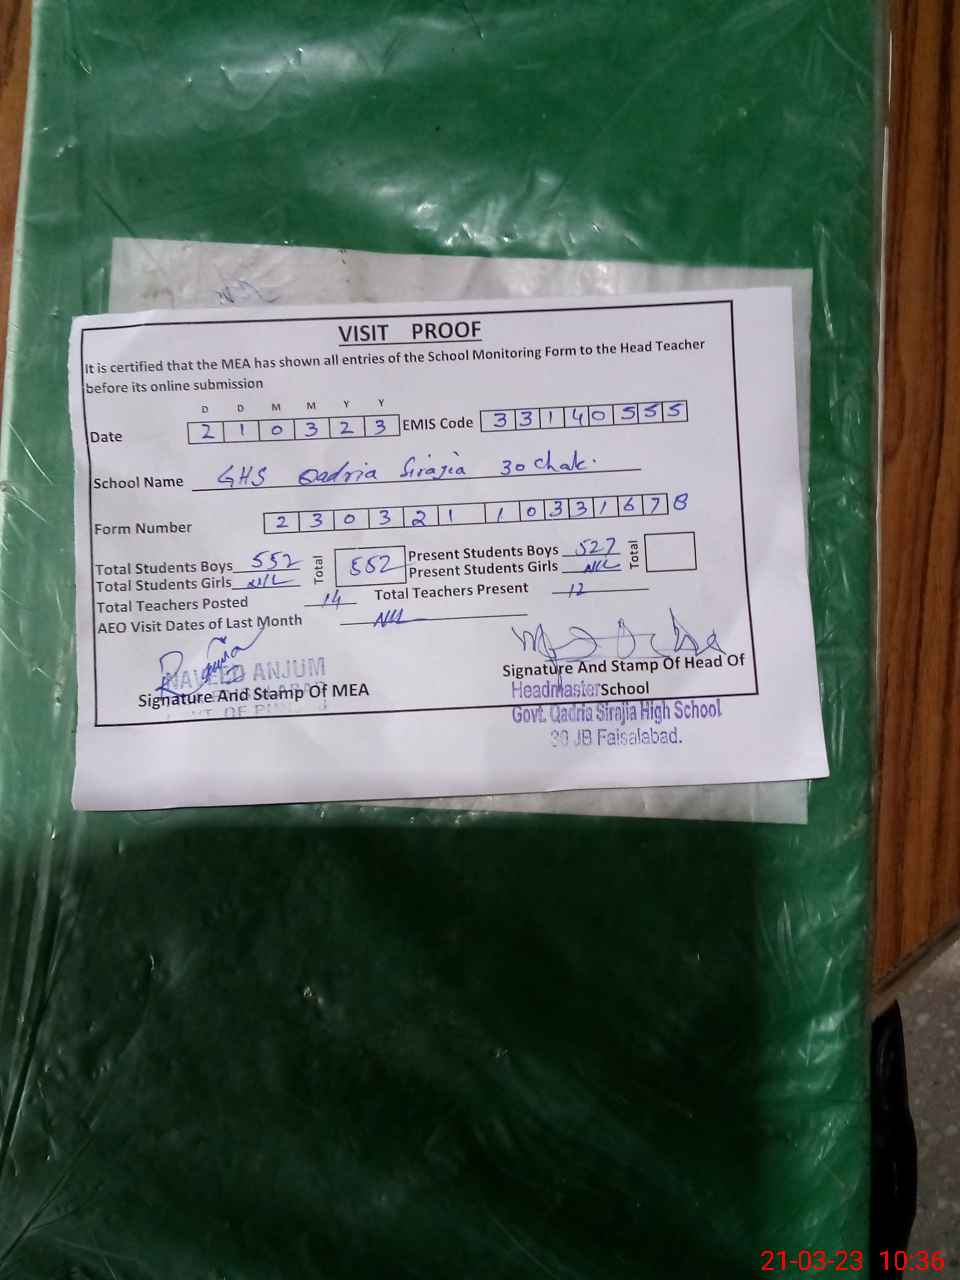 VISIT PROOF
It is certified that the MEA has shown all entries of the School Monitoring Form to the Head Teacher
before its online submission
D D M M Y Y
Date 2 1 0 3 2 3 EMIS Code 3 3 1 4 0 5 5 5
School Name GHS Qadria Sirajia 30 chak.
Form Number 2 3 0 3 21 1 1 0 3 3 1 6 7 8
Total Students Boys 552 Total 552 Present Students Boys 527 Total
Total Students Girls NIL Present Students Girls NIL
Total Teachers Posted 14 Total Teachers Present 12
AEO Visit Dates of Last Month NIL
NAVEED ANJUM
Signature And Stamp Of MEA
GOVT. OF PUNJAB
Signature And Stamp Of Head Of
School
Headmaster
Govt. Qadria Sirajia High School
30 JB Faisalabad.
21-03-23 10:36